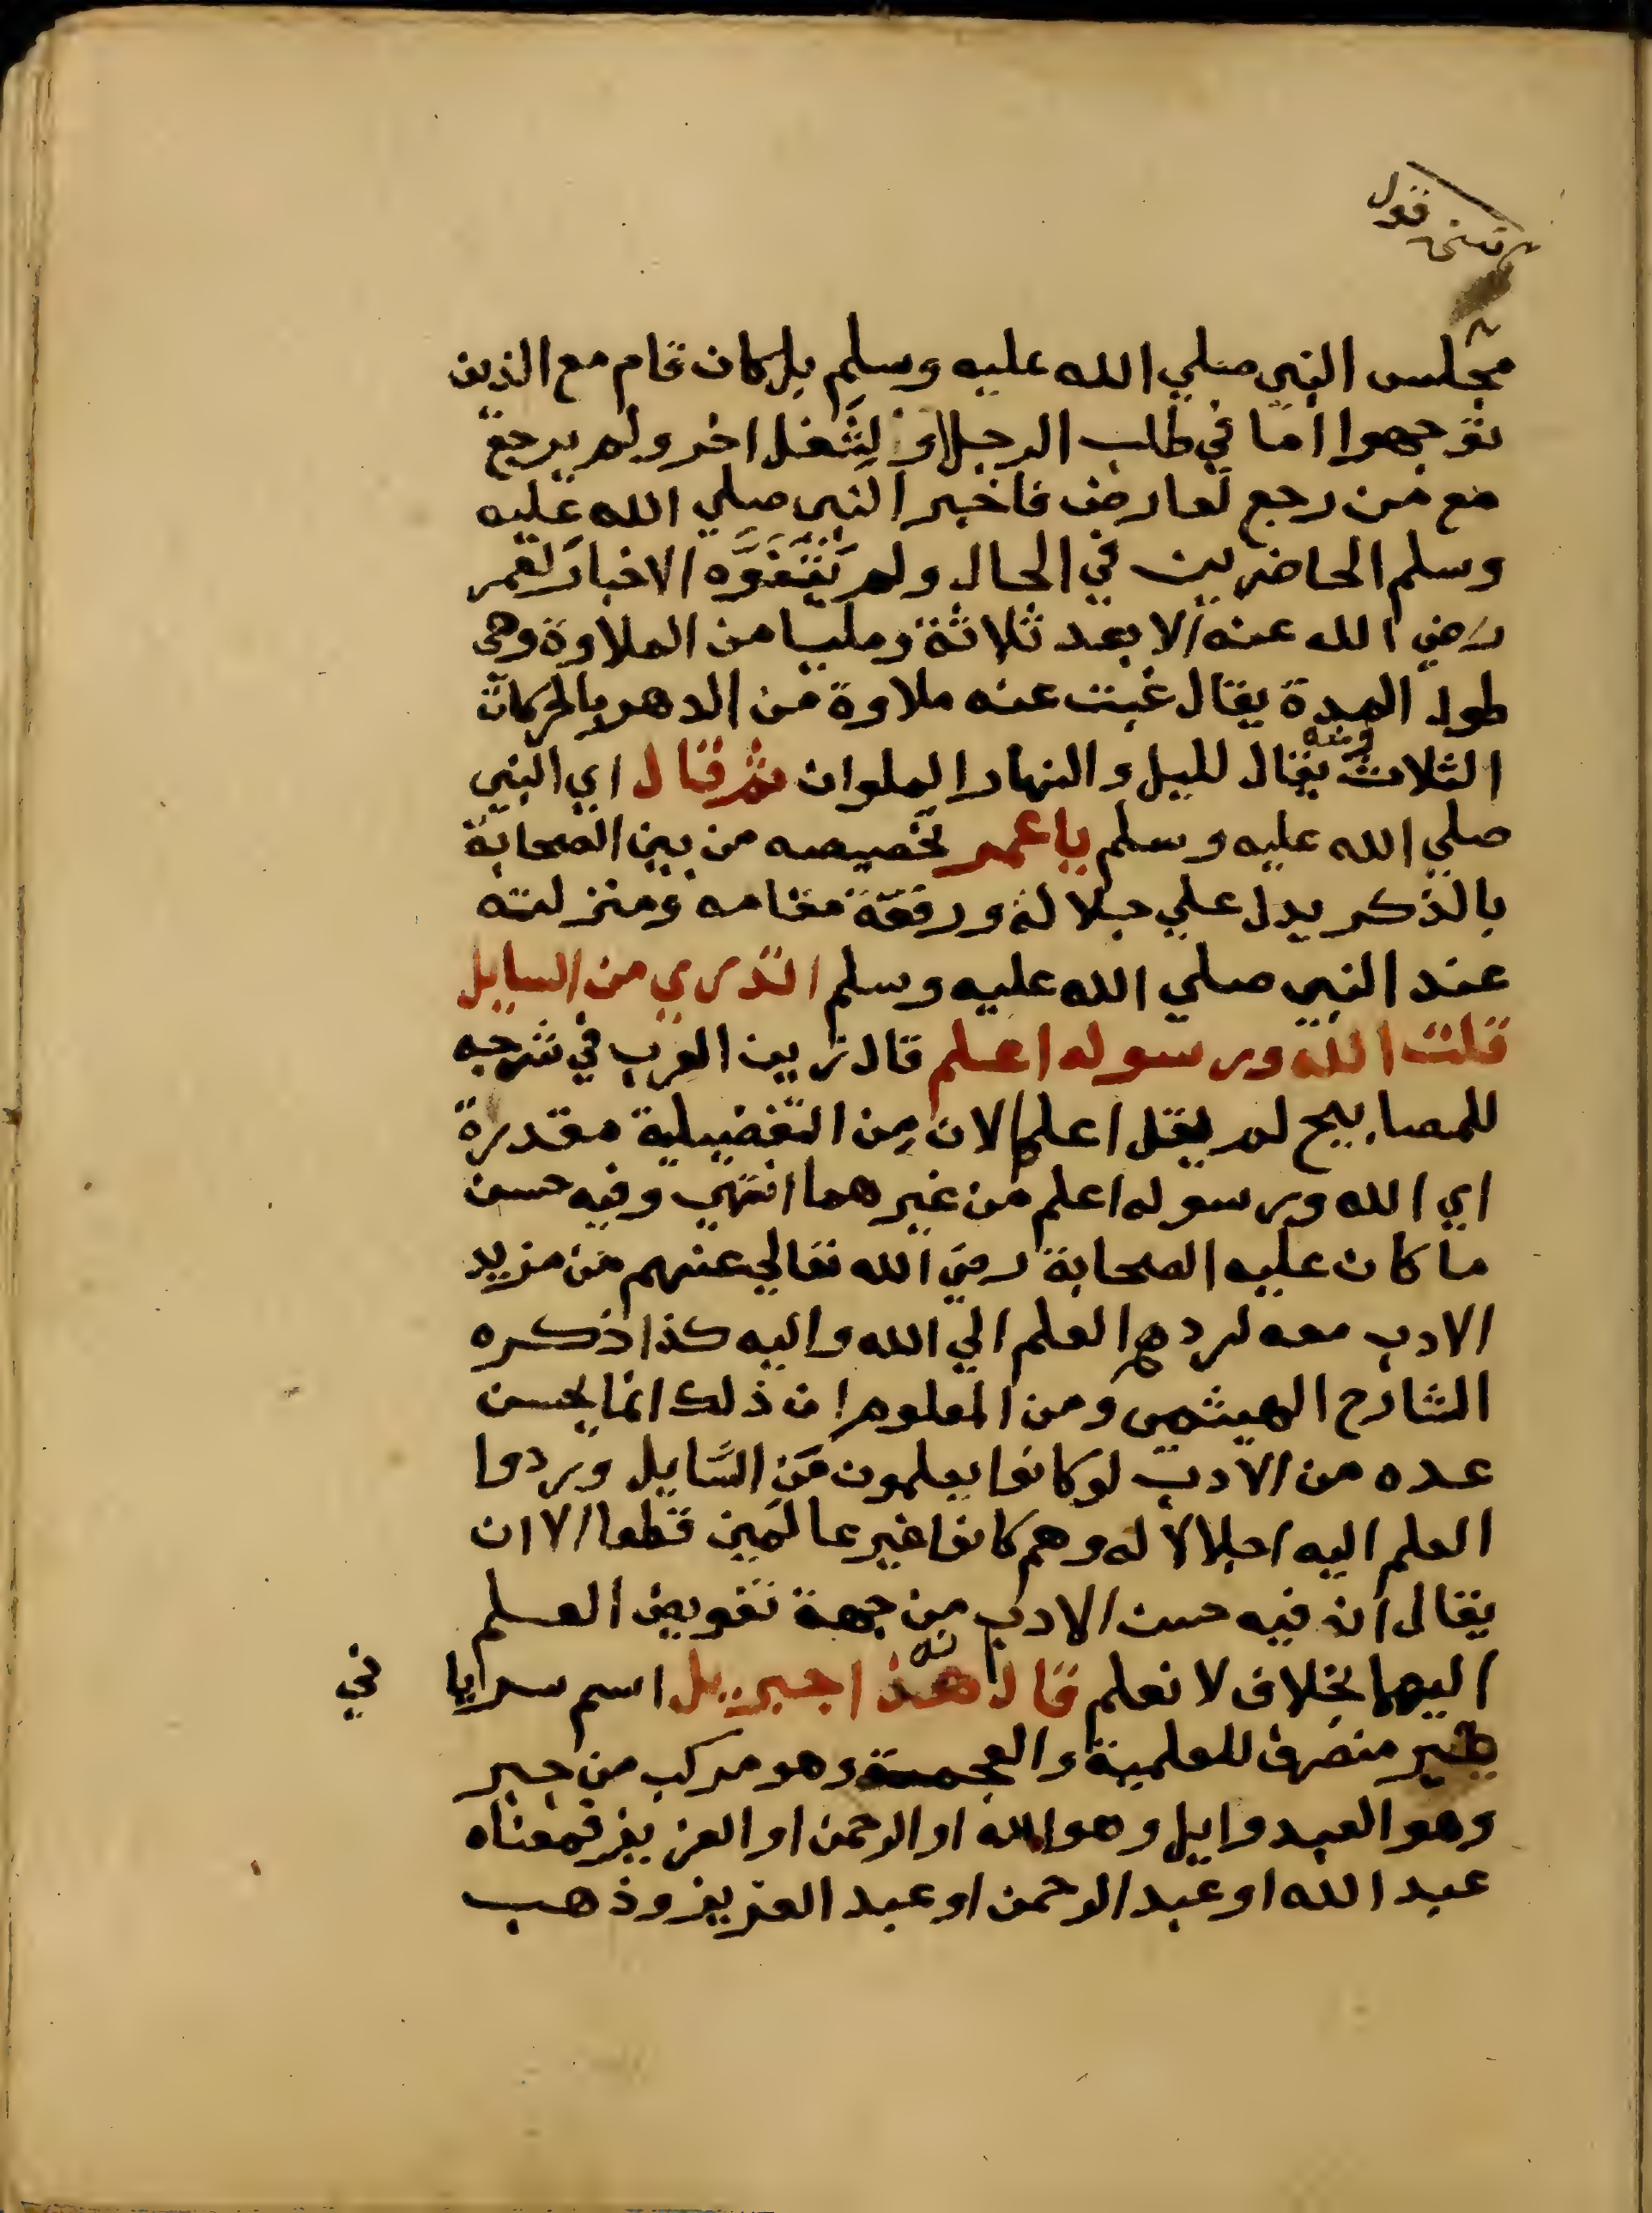 قول
مجلس النبي صلي الله عليه وسلم بل كان قام مع الذين
توجهوا اما في طلب الرجل او لشغل اخر ولم يرجع
مع من رجع لعارض فاخبر النبي صلي الله عليه
وسلم الحاضرين في الحال ولم يتفوه الاخبار لعمر
رضي الله عنه الا بعد ثلاثة ومليا من الملاوة وهي
طول المدة يقال غبت عنه ملاوة من الدهر بالحركات
الثلاث ومنه يقال لليل والنهار الملوان ثم قال اي النبي
صلي الله عليه وسلم يا عمر تخصيصه من بين الصحابة
بالذكر يدل علي جلالته ورفعة مقامه ومنزلته
عند النبي صلي الله عليه وسلم اتدري من السايل
قلت الله ورسوله اعلم قال زين العرب في شرحه
للمصابيح لم يقل اعلما لان من التفضيلية مقدرة
اي الله ورسوله اعلم من غيرهما انتهي وفيه حسن
ما كان عليه الصحابة رضي الله تعالي عنهم من مزيد
الادب معه لردهم العلم الي الله واليه كذا ذكره
الشارح الهيثمي ومن المعلوم ان ذلك انما يحسن
عده من الادب لو كانوا يعلمون من السايل وردوا
العلم اليه اجلالا له وهم كانوا غير عالمين قطعا الا ان
يقال ان فيه حسن الادب من جهة تفويض العلم
اليهما بخلاف لا نعلم قال هذا جبريل اسم سريا ني
غير منصرف للعلمية والعجمة وهو مركب من جبر
وهو العبد وايل وهو الله او الرحمن او العزيز فمعناه
عبد الله او عبد الرحمن او عبد العزيز وذهب